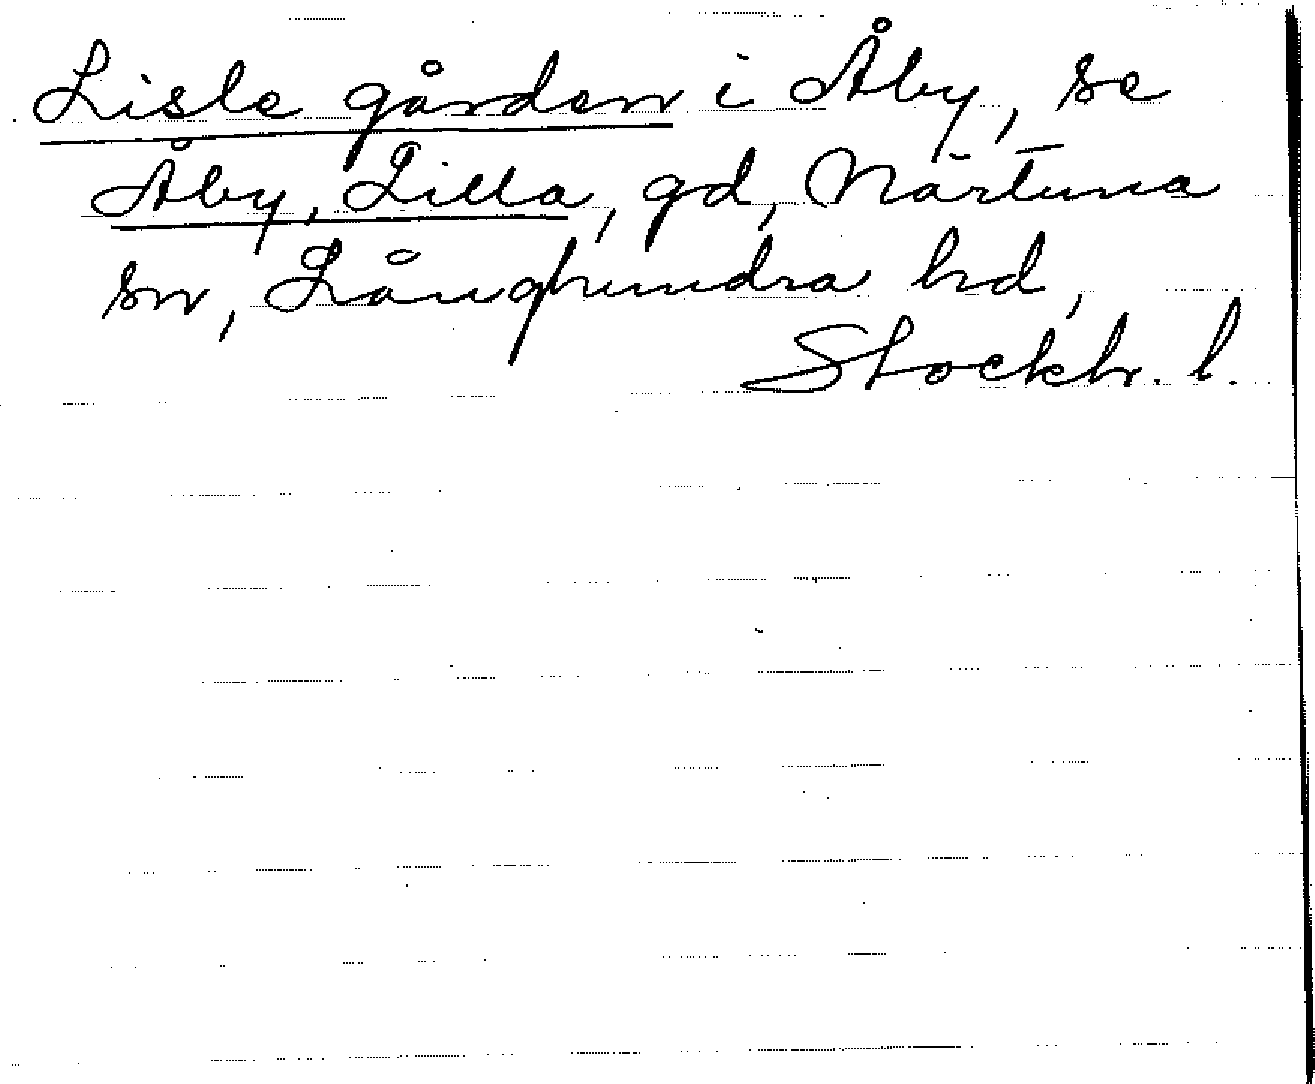 Lisle gården i Åby, se
Åby, Lilla, gd, Närtuna
sn, Långhundra hd,
Stockh. l.